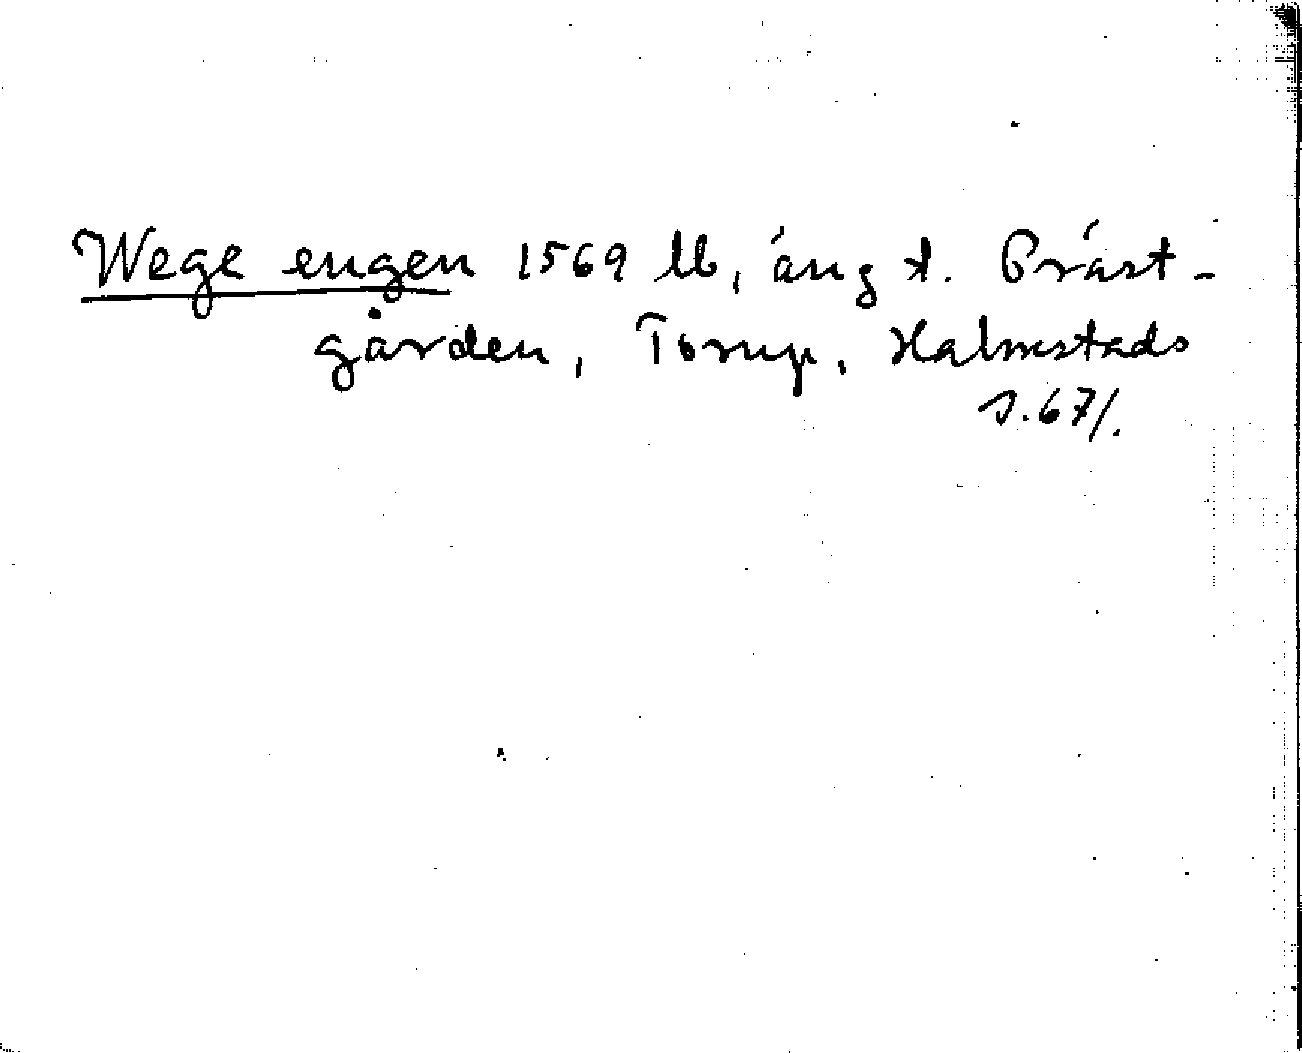 Wege engen 1569 lb, äng t. Präst-
gården, Torup, Halmstads
s. 67/.